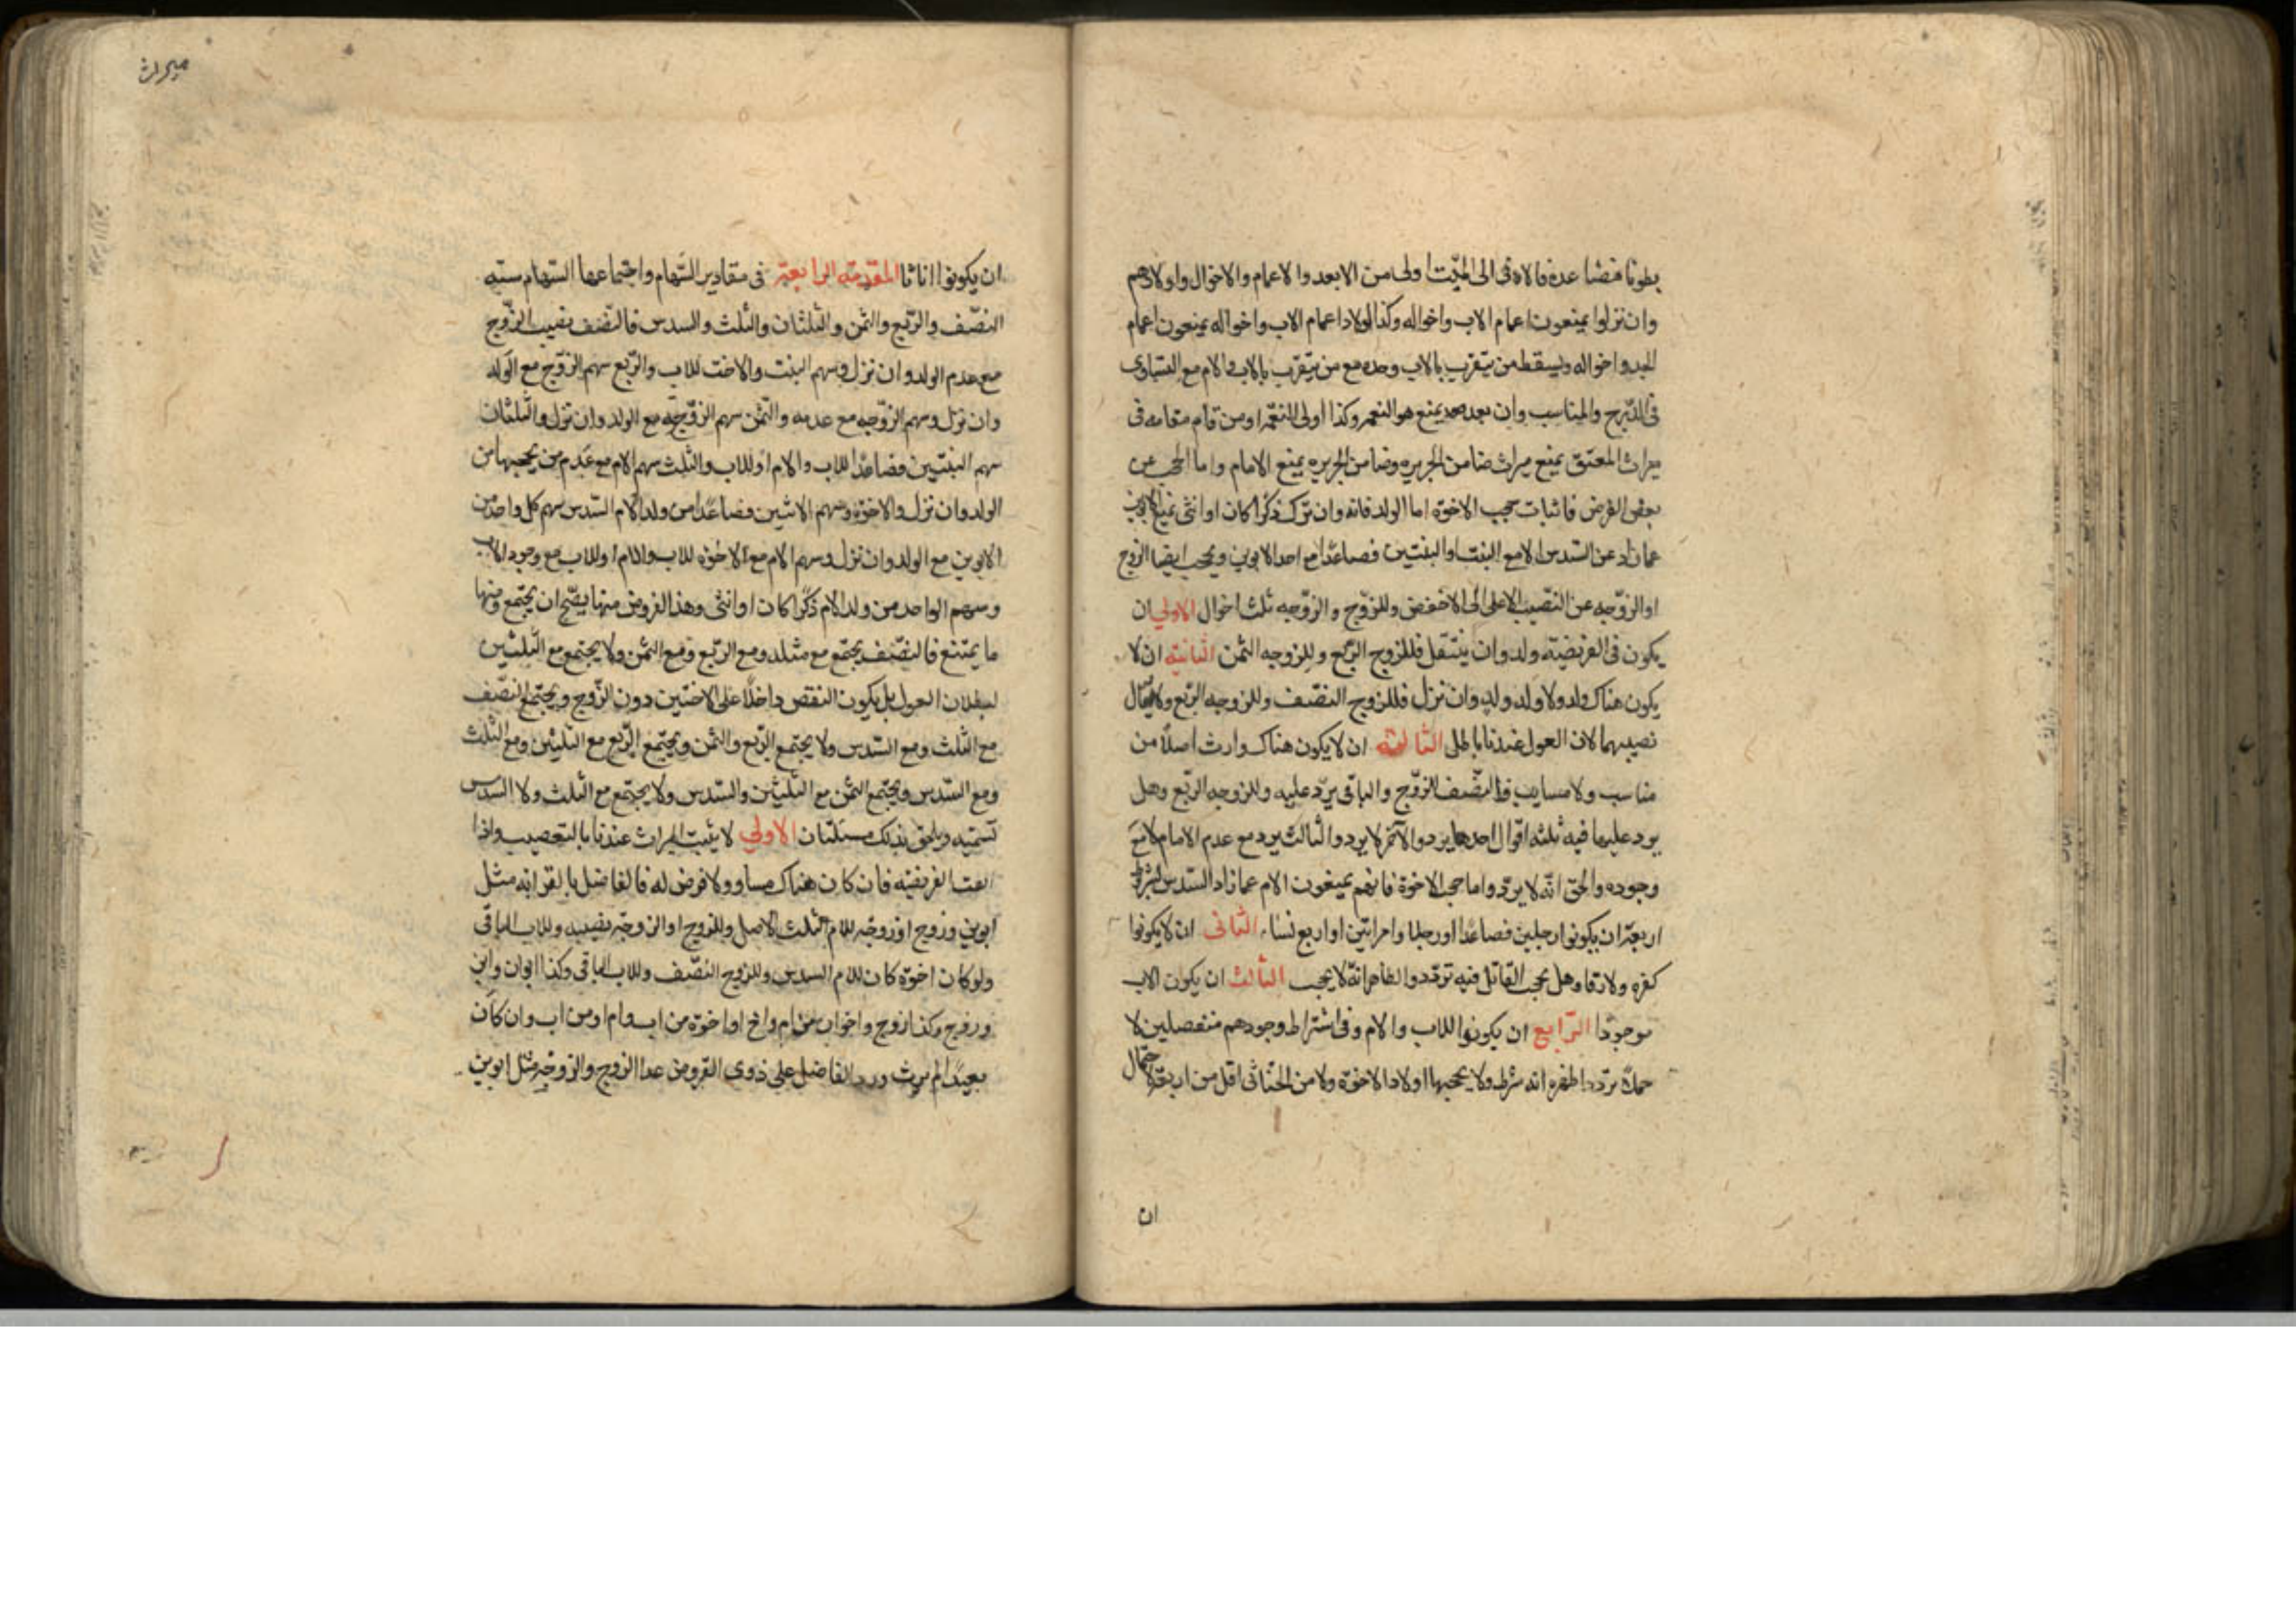 بطونا فصاعدا فالادنى الى الميّت اولى من الابعد والاعمام والاخوال واولادهم
وان نزلوا يمنعون اعمام الاب واخواله وكذا اولاد اعمام الاب واخواله يمنعون اعمام
الجد واخواله ويسقط من يتقرّب بالاب وحده مع من يتقرّب بالاب والام مع التساوى
فى الدّرج والمناسب وان بعد يمنع المنعم وكذا ولى النعمة او من قام مقامه فى
ميراث المعتق يمنع ميراث ضامن الجريره وضامن الجريره يمنع الامام واما الحجب عن
بعض الفرض فاثبات حجب الاخوة اما الولد فانه وان نزل ذكرا كان او انثى يمنع الابوين
عما زاد عن السّدس الا مع البنت او البنتين فصاعدا مع احد الابوين ويحجب ايضا الزوج
او الزوّجه عن النّصيب الاعلى الى الاخفض وللزوّج والزوّجه ثلث احوال الاولى ان
يكون فى الفريضة ولد وان سفل فللزوج الربع وللزوجه الثمن الثانية ان لا
يكون هناك ولد ولا ولد ولد وان نزل فللزوج النصّف وللزوجه الربع ولا يعال
نصيبهما لان العول عندنا باطل الثالثة ان لا يكون هناك وارث اصلا من
مناسب ولا مسابب فالنصّف للزوّج والباقى يردّ عليه وللزوجه الربّع وهل
يرد عليها فيه ثلثه اقوال احدها يرد والآخر لا يرد والثالث يرد مع عدم الامام لا مع
وجوده والحق انّه لا يردّ واما حجب الاخوة فانهم يمنعون الام عما زاد السّدس بشروط
اربعة ان يكونوا رجلين فصاعدا او رجلا وامراتين او اربع نساء الثانى ان لا يكونوا
كفره ولا رقا وهل يحجب القاتل فيه تردّد والظاهر انّه لا يحجب الثالث ان يكون الاب
موجودا الرّابع ان يكونوا للاب والام وفى اشتراط وجودهم منفصلين لا
حملا تردّد اظهره انه شرط ولا يحجبها اولاد الاخوة ولا من الخناثى اقل من اربعة لاحتمال
ان
ميراث
ان يكونوا اناثا المقدمة الرابعة فى مقادير السّهام واجتماعها السّهام ستّه
النصّف والربّع والثمن والثلثان والثلث والسدس فالنصف نصيب الزّوج
مع عدم الولد وان نزل وسهم البنت والاخت للاب والرّبع سهم الزّوج مع الولد
وان نزل وسهم الزوّجه مع عدمه والثّمن سهم الزوّجه مع الولد وان نزل والثلثان
سهم البنتين فصاعدا للاب والام او للاب والثلث سهم الام مع عدم من يحجبها من
الولد وان نزل والاخوة وسهم الاثنين فصاعدا من ولد الام السّدس سهم كل واحد من
الابوين مع الولد وان نزل وسهم الام مع الاخوه للاب والام او للاب مع وجود الاب
وسهم الواحد من ولد الام ذكرا كان او انثى وهذه الفروض منها يصّح ان يجتمع ومنها
ما يمتنع فالنصّف يجتمع مع مثله ومع الربّع ومع الثمن ولا يجتمع مع الثلثين
لبطلان العول بل يكون النقص داخلا على الاختين دون الزّوج ويجتمع النصّف
مع الثلث ومع السّدس ولا يجتمع الربّع والثمن ويجتمع الربّع مع الثلثين ومع الثلث
ومع السّدس ويجتمع الثمن مع الثلثين والسّدس ولا يجتمع مع الثلث ولا السدس
تسميه ويلحق بذلك مسئلتان الاولى لا يثبت الميراث عندنا بالتعصيب واذا
ابقت الفريضه فان كان هناك مساو ولا فرض له فالفاضل بالقرابه مثل
ابوين وزوج او زوجة للام الثلث الاصل وللزوج او الزوجّة نصيبه وللاب الباقى
ولو كان اخوّة كان للام السدس وللزوج النصّف وللاب الباقى وكذا ابوان وابن
وزوج وكذا زوج واخوان من ام واخ او اخوة من اب وام او من اب وان كان
بعيدا لم يرث ورد الفاضل على ذوى الفروض عدا الزوج والزوجة مثل ابوين